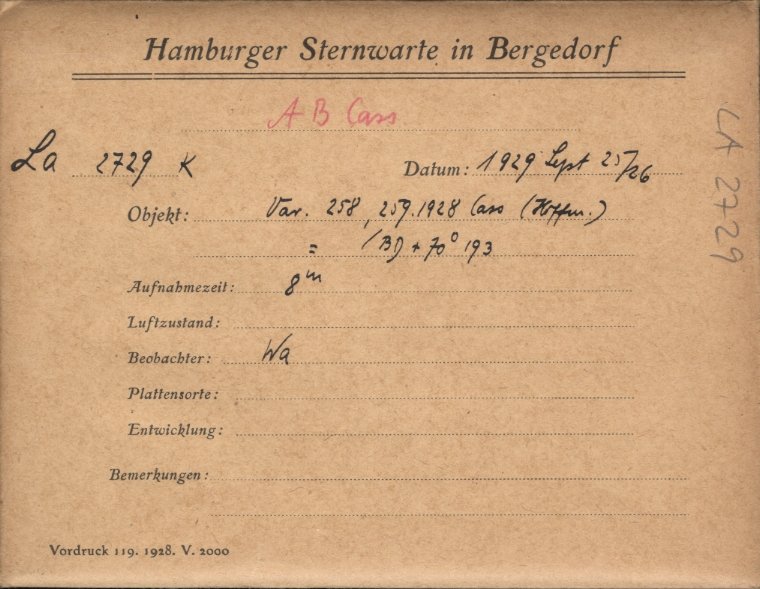 Hamburger Sternwarte in Bergedorf
AB Cass
La 2729 K Datum: 1929 Sept 25/26
Objekt: Var. 258, 259.1928 Cass (Hoffm.)
= (BD + 70° 193
Aufnahmezeit: 8m
Luftzustand:
Beobachter: Wa
Plattensorte:
Entwicklung:
Bemerkungen:
Vordruck 119. 1928. V. 2000
LA 2729